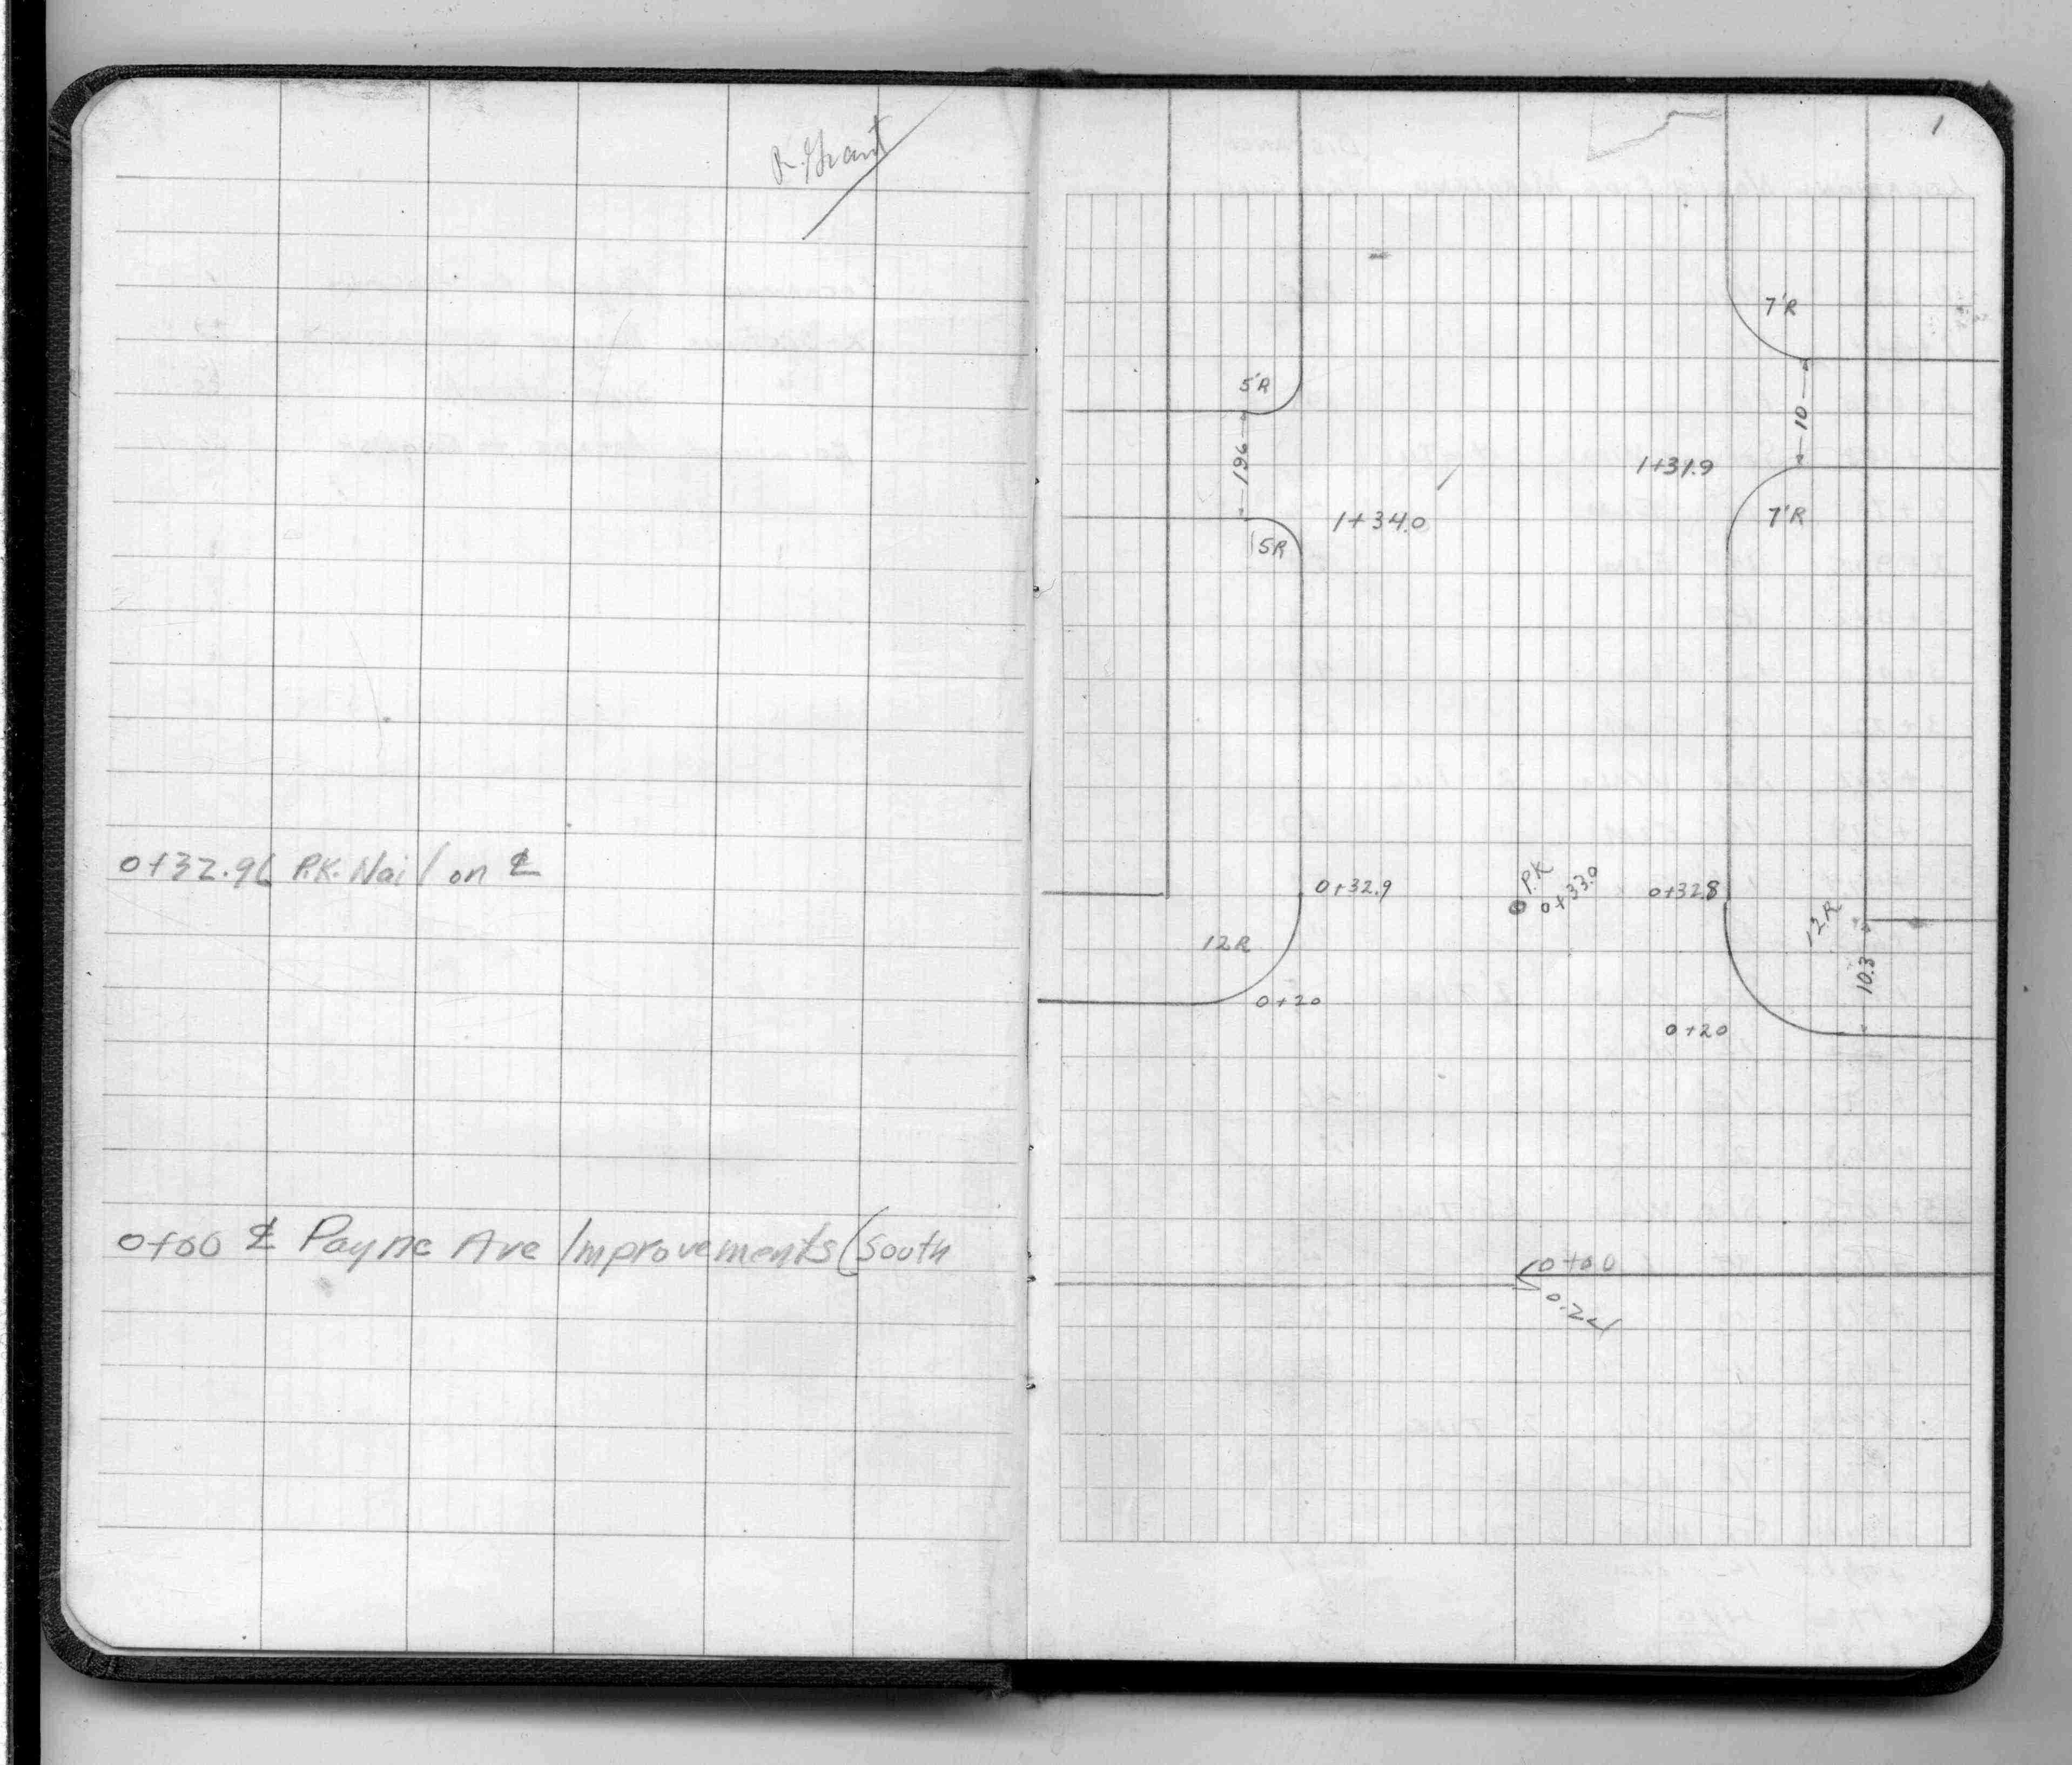 R. Grant
0+32.96 P.K. Nail on ℄
0+00 ℄ Payne Ave Improvements (South
1
7'R
5'R
10
196
1+31.9
1+34.0
7'R
5R
0+32.9
P.K
0+33.0
0+32.8
12R
12R
10.3
0+20
0+20
0+00
0.24